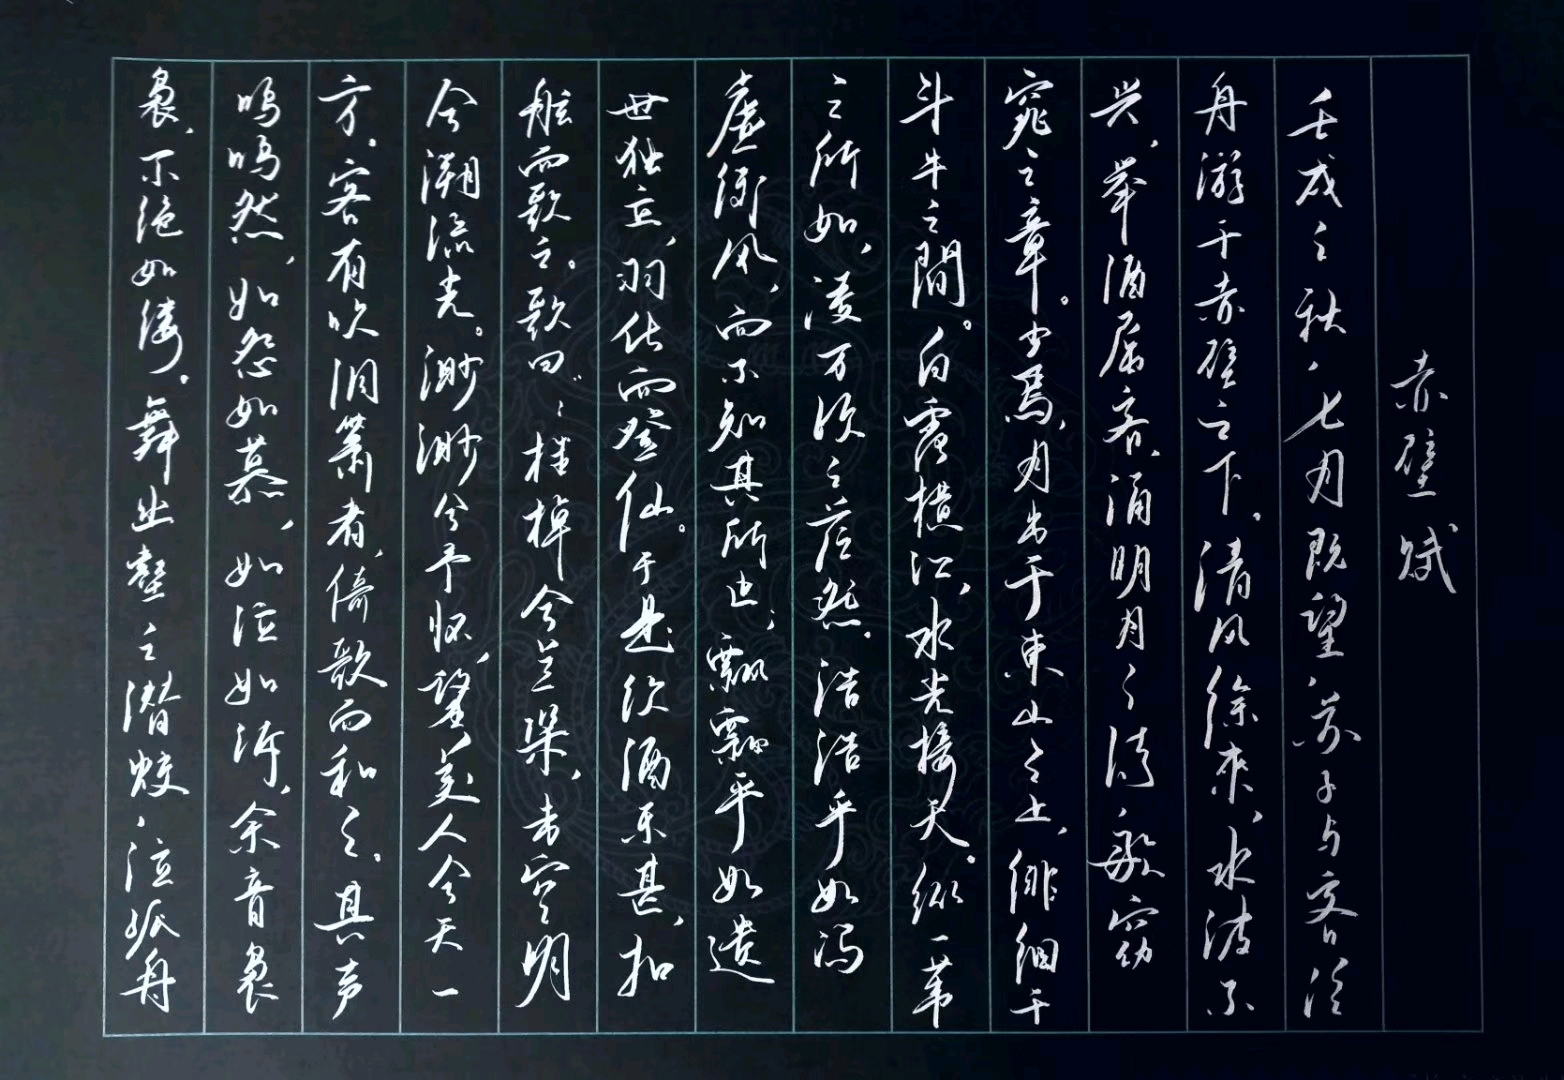 赤壁赋
壬戌之秋，七月既望，苏子与客泛
舟游于赤壁之下。清风徐来，水波不
兴，举酒属客，诵明月之诗，歌窈
窕之章。少焉，月出于東山之上，徘徊于
斗牛之間。白露横江，水光接天。纵一苇
之所如，凌万顷之茫然。浩浩乎如冯
虚御风，而不知其所止；飘飘乎如遗
世独立，羽化而登仙。于是饮酒乐甚，扣
舷而歌之。歌曰：桂棹兮兰桨，击空明
兮溯流光。渺渺兮予怀，望美人兮天一
方。客有吹洞箫者，倚歌而和之。其声
呜呜然，如怨如慕，如泣如诉，余音袅
袅，不绝如缕。舞幽壑之潜蛟，泣孤舟